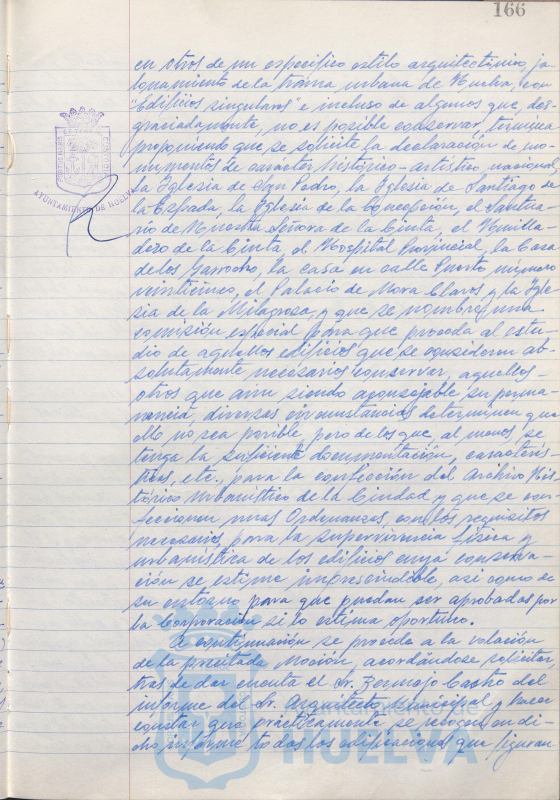 166
en otros de un específico estilo arquitectónico, ja-
lonamiento de la trama urbana de Huelva, con
"Edificios singulares" e incluso de algunos que, des-
graciadamente, no es posible conservar, termina
proponiendo que se solicite la declaración de mo-
numentos de carácter histórico-artístico nacional,
la Iglesia de San Pedro, la Iglesia de Santiago de
la Espada, la Iglesia de la Concepción, el Santua-
rio de Nuestra Señora de la Cinta, el Humilla-
dero de la Cinta, el Hospital Provincial, la Casa
de los Garrocho, la casa en calle Puerto número
veinticinco, el Palacio de Mora Claros y la Igle-
sia de la Milagrosa, y que se nombre una
comisión especial para que proceda al estu-
dio de aquellos edificios que se consideren ab-
solutamente necesarios conservar, aquellos
otros que aún siendo aconsejable su perma-
nencia, diversas circunstancias determinen que
ello no sea posible, pero de los que, al menos, se
tenga la suficiente documentación, caracterís-
ticas, etc., para la confección del Archivo His-
tórico Urbanístico de la Ciudad y que se con-
feccionen unas Ordenanzas, con los requisitos
necesarios, para la supervivencia física y
urbanística de los edificios cuya conserva-
ción se estime imprescindible, así como de
su entorno, para que puedan ser aprobadas por
la Corporación si lo estima oportuno.
A continuación se procede a la votación
de la precitada Moción, acordándose solicitar
tras dar cuenta el Sr. Bermejo Castro del
informe del Sr. Arquitecto Municipal y hacer
constar que prácticamente se recogen en di-
cho informe todos los edificios que figuran
AYUNTAMIENTO DE HUELVA
HUELVA